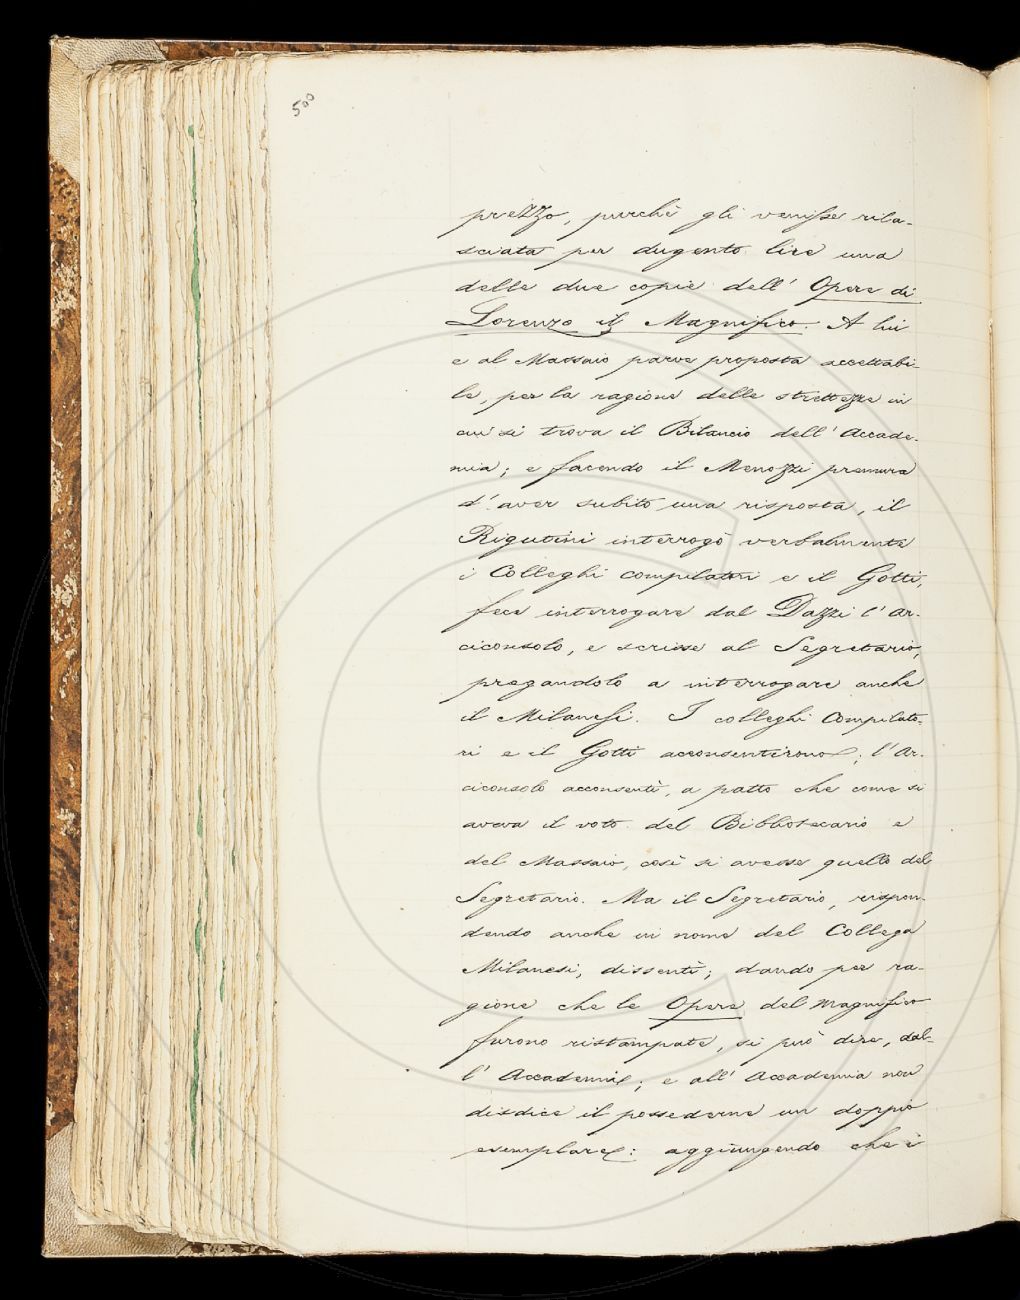 500
prezzo, purchè gli venisse rila-
sciata per dugento lire una
delle due copie dell' Opere di
Lorenzo il Magnifico. A lui
e al Massaio parve proposta accettabi-
le, per la ragione delle strettezze in
cui si trova il Bilancio dell' Accade-
mia; e facendo il Menozzi premura
d' aver subito una risposta, il
Rigutini interrogò verbalmente
i Colleghi compilatori e il Gotti,
fece interrogare dal Dazzi l' Ar-
ciconsolo, e scrisse al Segretario,
pregandolo a interrogare anche
il Milanesi. I colleghi Compilato-
ri e il Gotti acconsentirono; l' Ar-
ciconsolo acconsentì, a patto che come si
aveva il voto del Bibliotecario e
del Massaio, così si avesse quello del
Segretario. Ma il Segretario, rispon-
dendo anche in nome del Collega
Milanesi, dissentì; dando per ra-
gione che le Opere del Magnifico
furono ristampate, si può dire, dal-
l' Accademia; e all' Accademia non
disdice il possederne un doppio
esemplare: aggiungendo che i